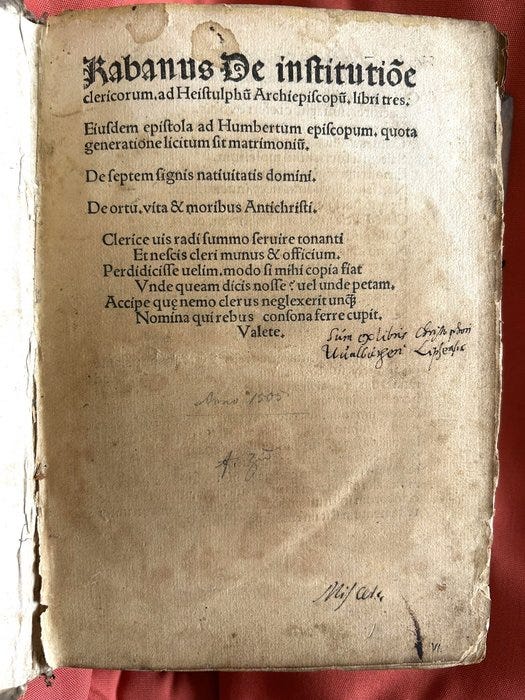 Rabanus De institutiōe
clericorum. ad Heistulphū Archiepiscopū. libri tres.
Eiusdem epistola ad Humbertum episcopum. quota
generatione licitum sit matrimoniū.
De septem signis natiuitatis domini.
De ortu. vita & moribus Antichristi.
Clerice uis radi summo seruire tonanti
Et nescis cleri munus & officium.
Perdidicisse uelim. modo si mihi copia fiat
Vnde queam dicis nosse? uel unde petam.
Accipe quę nemo clerus neglexerit unq̄
Nomina qui rebus consona ferre cupit.
Valete.
Sum ex libris
Lipsensis
Anno 1505
VI.